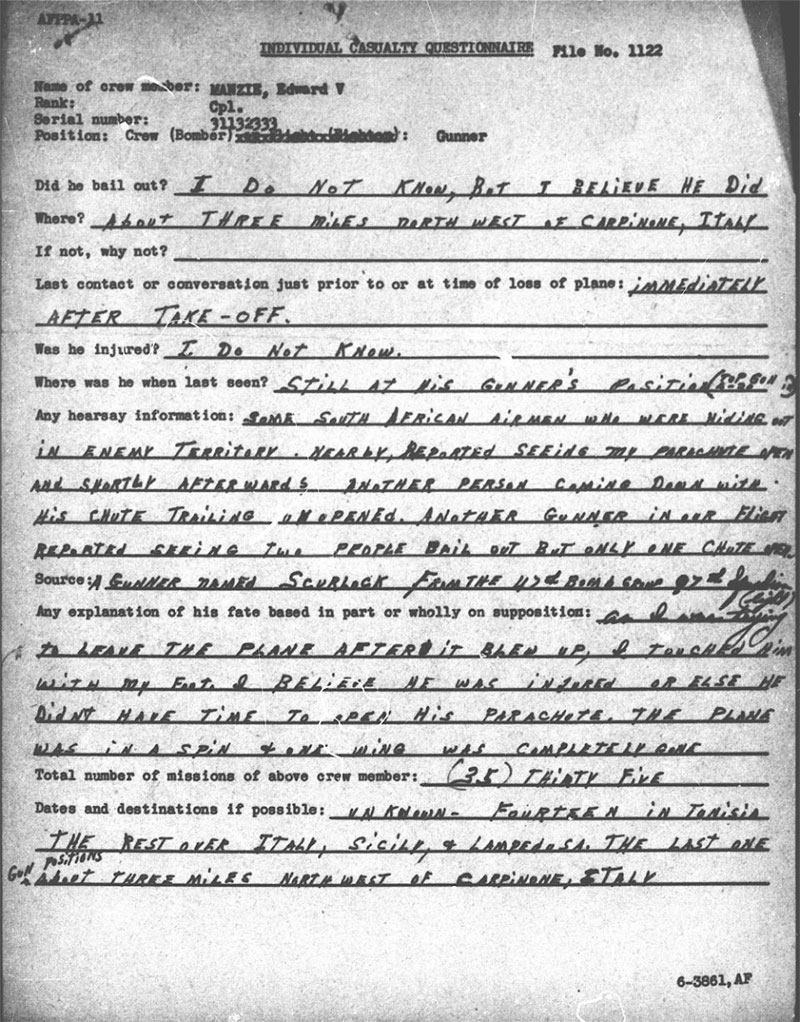 AFPPA-11
INDIVIDUAL CASUALTY QUESTIONNAIRE File No. 1122
Name of crew member: MANZIE, Edward V
Rank: Cpl.
Serial number: 31132333
Position: Crew (Bomber) : Gunner
Did he bail out? I DO NOT KNOW, BUT I BELIEVE HE DID
Where? ABOUT THREE MILES NORTH WEST OF CARPINONE, ITALY
If not, why not?
Last contact or conversation just prior to or at time of loss of plane: IMMEDIATELY
AFTER TAKE-OFF.
Was he injured? I DO NOT KNOW.
Where was he when last seen? STILL AT HIS GUNNER'S POSITION (TOP GUN
Any hearsay information: SOME SOUTH AFRICAN AIRMEN WHO WERE HIDING OUT
IN ENEMY TERRITORY. NEARBY, REPORTED SEEING MY PARACHUTE OPEN
AND SHORTLY AFTERWARDS ANOTHER PERSON COMING DOWN WITH
HIS CHUTE TRAILING UNOPENED. ANOTHER GUNNER IN OUR FLIGHT
REPORTED SEEING TWO PEOPLE BAIL OUT BUT ONLY ONE CHUTE OPEN.
Source: A GUNNER NAMED SCURLOCK FROM THE 47th BOMB GROUP 97th Squadron (Light)
Any explanation of his fate based in part or wholly on supposition: as I was trying
TO LEAVE THE PLANE AFTER IT BLEW UP, I TOUCHED HIM
WITH MY FOOT. I BELIEVE HE WAS INJURED OR ELSE HE
DIDNT HAVE TIME TO OPEN HIS PARACHUTE. THE PLANE
WAS IN A SPIN & ONE WING WAS COMPLETELY GONE
Total number of missions of above crew member: (35) THIRTY FIVE
Dates and destinations if possible: UNKNOWN- FOURTEEN IN TUNISIA
THE REST OVER ITALY, SICILY, & LAMPEDOSA. THE LAST ONE
GUN POSITIONS
ABOUT THREE MILES NORTH WEST OF CARPINONE, ITALY
6-3861,AF